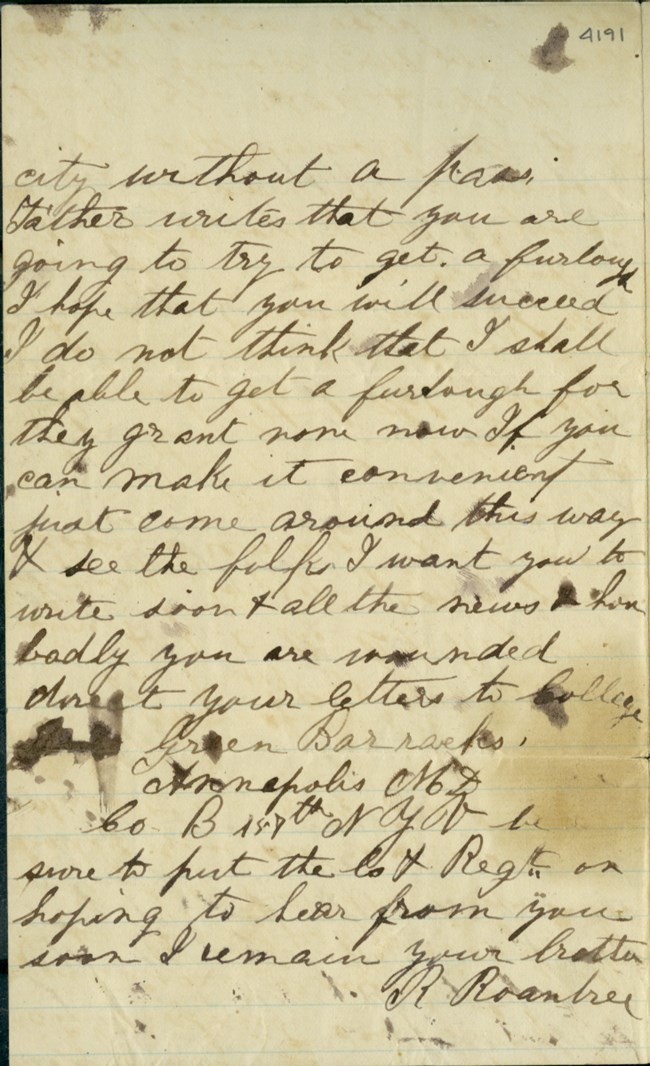 4191
city without a pass.
Father writes that you are
going to try to get. a furlough
I hope that you will succeed
I do not think that I shall
be able to get a furlough for
they grant none now If you
can make it convenient
just come around this way
& see the folks I want you to
write soon & all the news & how
badly you are wounded
direct your letters to College
Green Barracks.
Annapolis MD
Co B 157th N Y V be
sure to put the Co & Regt. on
hoping to hear from you
soon I remain your brother
R Roantree